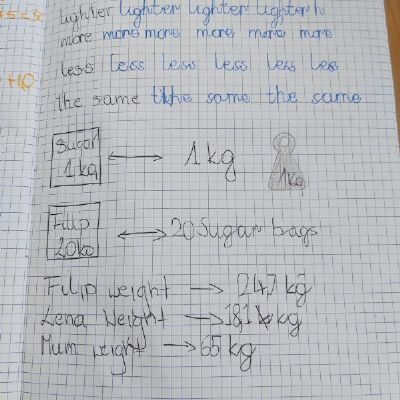 lighter lighter lighter lighter h
more more more more more more
less less less less less less
the same the same the same
Sugar
1kg
1kg
1kg
Filip
20kg
20 Sugar bags
Filip weight → 24,7 kg
Lena weight → 18,1 kg
Mum weight → 65 kg